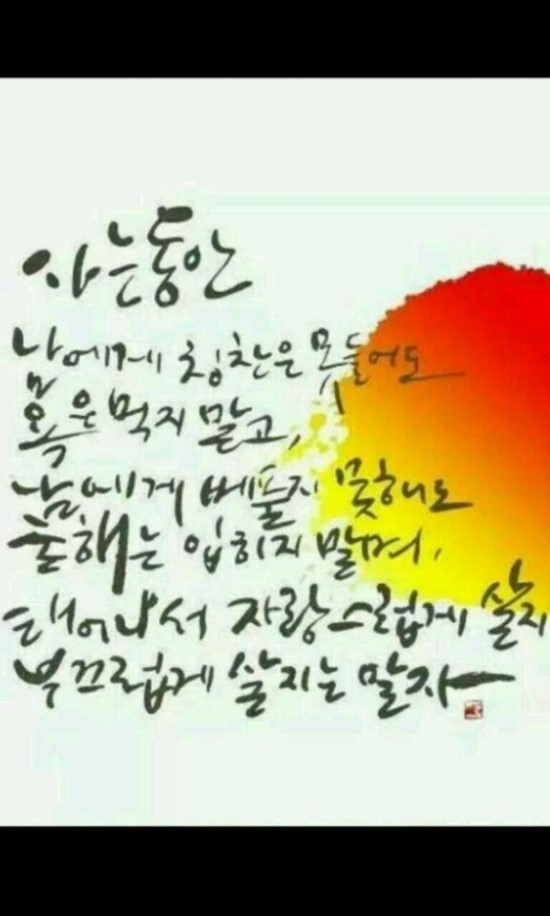 사는동안
남에게 칭찬은 못들어도
욕은 먹지 말고,
남에게 베풀지 못해도
손해는 입히지 말며,
태어나서 자랑스럽게 살지
부끄럽게 살지는 말자